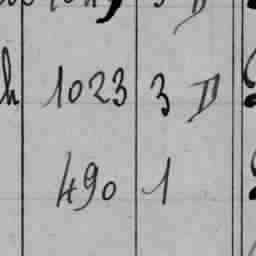 1023 3 II
490 1